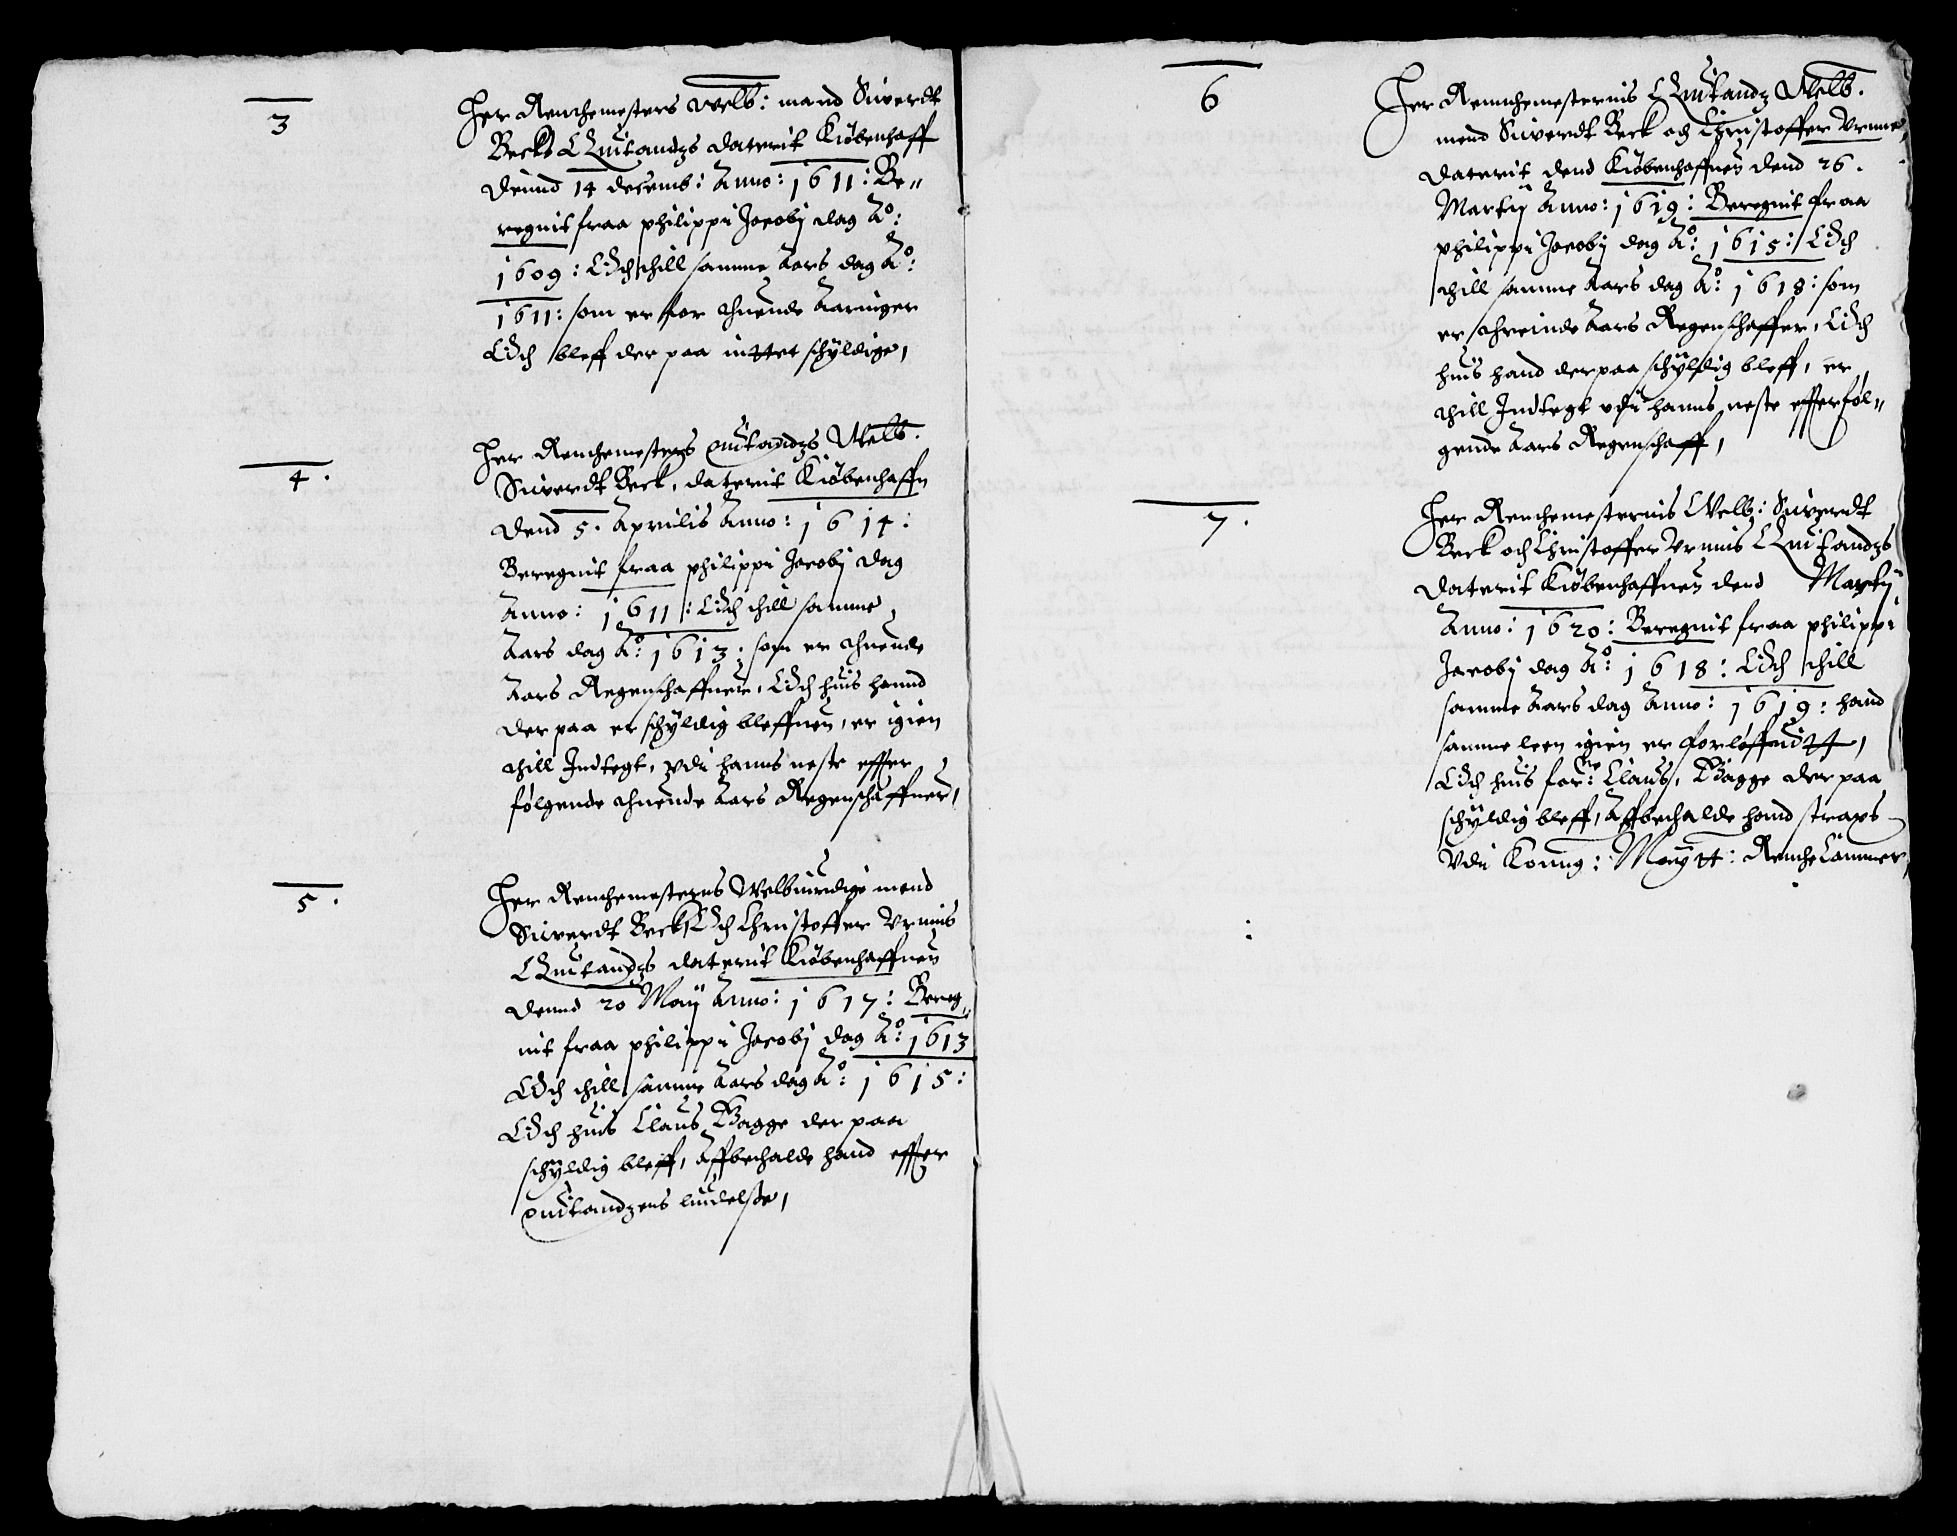 3
Her Renthemesters Welb: mand Siuerdt
Becks Quitandzs daterit Kiøbenhaff
dennd 14 decemb: Anno: 1611: Be„
regnit fraa philippi Jacobj dag Ao:
1609: Och thill samme Aars dag Ao:
1611: som er for thuende Aaringer
Och bleff der paa inttet schÿldige,
4.
Her Renthemesters quitandzs Welb.
Siuerdt Beck, daterit Kiøbenhaffn
dend 5. Aprilis Anno: 1614:
Beregnit fraa philippi Jacobj dag
Anno: 1611: Och thill samme
Aars dag Ao: 1613: som er thuende
Aars Regenschaffner, Och huis hannd
der paa er schÿldig bleffuen, er igien
thill Indtegt, vdi hanns neste effter
følgende thuende Aars Regenschaffner,
5.
Her Renthemesterns Welbiurdige mend
Siuerdt Beck, Och Christoffer Vrnnis
Quitandzs daterit Kiøbenhaffnen
dennd 20 Maÿ Anno: 1617: Bereg„
nit fraa philippi Jacobj dag Ao: 1613
Och thill samme Aars dag Ao: 1615:
Och huis Claus Bagge der paa
schÿldig bleff, Affbethalde hand effter
quitandzens liudelsse,
6
Her Rennthemesternis Quitandz Welb.
mend Siuerdt Beck och Christoffer Vrnne,
daterit dend Kiøbenhaffnen dend 26.
Martij Anno: 1619: Beregnit fraa
philippi Jacobj dag Ao: 1615: Och
thill samme Aars dag Ao: 1618: som
er threinde Aars Regenschaffter, Och
huis hand der paa schÿldig bleff, er
thill Indtegt vdi hanns neste effterføl„
gende Aars Regenschaff,
7.
Her Renthemesternis Welb: Siuerdt
Beck och Christoffer Vrnnis Quitandzs
daterit Kiøbenhaffnen dend Martij
Anno: 1620: Beregnit fraa philippi
Jacobj dag Ao: 1618: Och thill
samme Aars dag Anno: 1619: hand
samme leen igien er forløffuditt,
Och huis forne: Claus, Bagge der paa
schÿldig bleff, Affbethalde hand straxs
Vdi Konng: Maÿtt: Renthe Cammer,